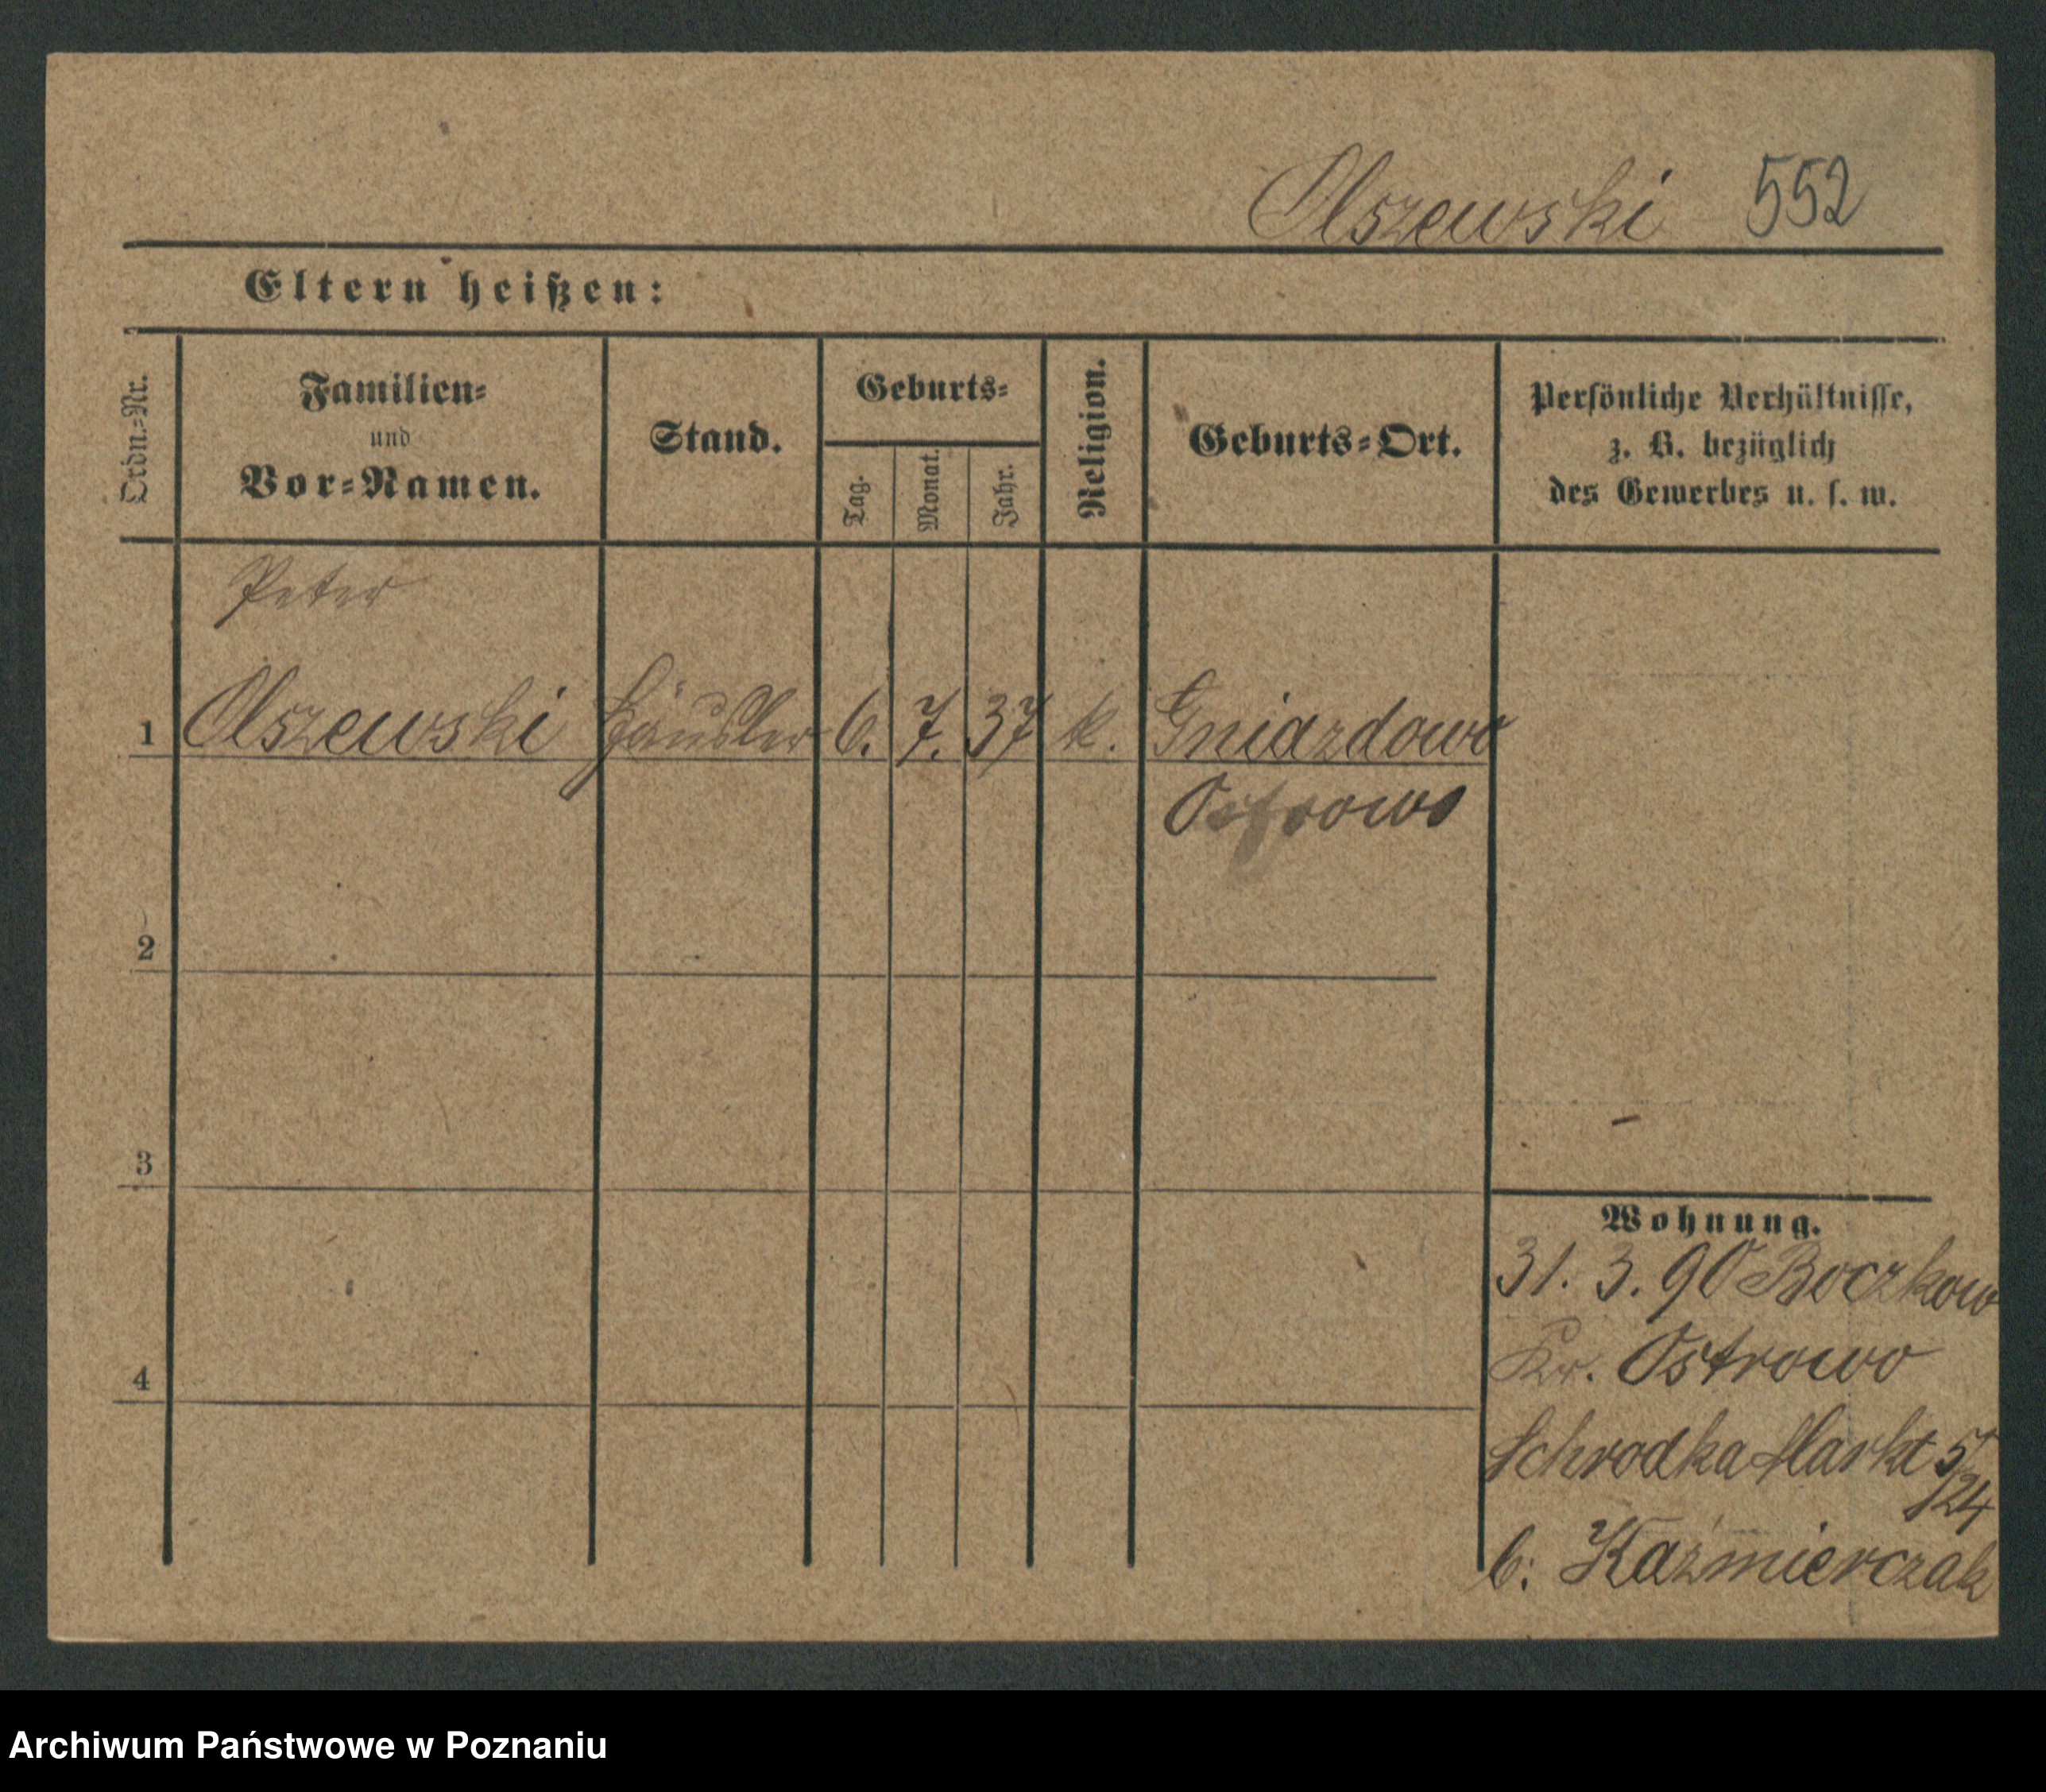 Olszewski 552
Eltern heißen:
Ordn.-Nr.
Familien-
und
Vor-Namen.
Stand.
Geburts-
Tag.
Monat.
Jahr.
Religion.
Geburts-Ort.
Persönliche Verhältnisse,
z. B. bezüglich
des Gewerbes u. s. w.
Peter
1 Olszewski Häusler 6. 7. 37 k. Gniazdowo
Ostrowo
2
3
4
Wohnung.
31. 3. 90 Boczkow
Kr. Ostrowo
Schrodka Markt 5/24
b: Kaźmierczak
Archiwum Państwowe w Poznaniu